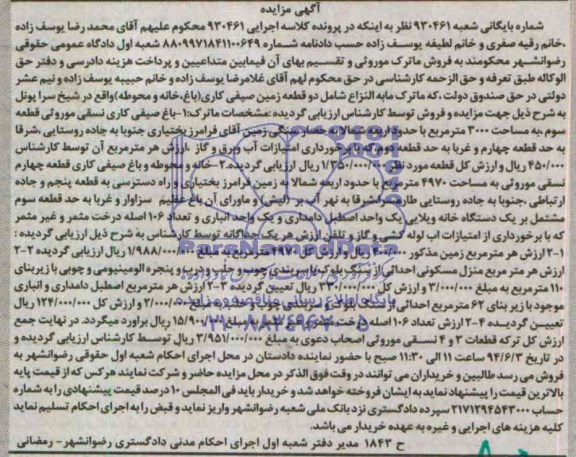 آگهی مزایده
شماره بایگانی شعبه ۹۳۰۴۶۱ نظر به اینکه در پرونده کلاسه اجرایی ۹۳۰۴۶۱ محکوم علیهم آقای محمد رضا یوسف زاده
،خانم رقیه صفری و خانم لطیفه یوسف زاده حسب دادنامه شماره ۸۸۰۹۹۷۱۸۴۱۱۰۰۶۴۹ شعبه اول دادگاه عمومی حقوقی
رضوانشهر محکومند به فروش ماترک موروثی و تقسیم بهای آن فیمابین متداعیین و پرداخت هزینه دادرسی و دفتر حق
الوکاله طبق تعرفه و حق الزحمه کارشناسی در حق محکوم لهم آقای غلامرضا یوسف زاده و خانم حبیبه یوسف زاده و نیم عشر
دولتی در حق صندوق دولت،که ماترک مابه النزاع شامل دو قطعه زمین صیفی کاری(باغ،خانه و محوطه)واقع در شیخ سرا پونل
به شرح ذیل جهت مزایده و فروش توسط کارشناس ارزیابی گردیده:مشخصات ماترک:۱-باغ صیفی کاری نسقی موروثی قطعه
سوم ،به مساحت ۳۰۰۰ مترمربع با حدود زمین آقای فرامرز بختیاری جنوبا به جاده روستایی ،شرقا
به حد قطعه چهارم و غربا به حد قطعه دوم که با برخورداری امتیازات آب وبرق و گاز ،ارزش هر مترمربع آن توسط کارشناس
۴۵۰/۰۰۰ ریال و ارزش کل قطعه مورد نظر ۱/۳۵۰/۰۰۰/۰۰۰ ریال ارزیابی گردیده.۲-خانه و محوطه و باغ صیفی کاری قطعه چهارم
نسقی موروثی به مساحت ۴۹۷۰ مترمربع با حدود اربعه شمالا به زمین فرامرز بختیاری و راه دسترسی به قطعه پنجم و جاده
ارتباطی ،جنوبا به جاده روستایی شرقا به نهر آب بر و ماورای آن باغ عظیم سزاوار و غربا به حد قطعه سوم
مشتمل بر یک دستگاه خانه ویلایی یک واحد اصطبل دامداری و یک واحد انباری و تعداد ۱۰۶ اصله درخت مثمر و غیر مثمر
که با برخورداری از امتیازات اب لوله کشی و گاز و تلفن ارزش هر یک جداگانه توسط کارشناس به شرح ذیل ارزیابی گردیده :
۱-۲ ارزش هر مترمربع زمین مذکور ۴۰۰/۰۰۰ ریال و ارزش کل ۴۹۷۰ مترمربع به مبلغ ۱/۹۸۸/۰۰۰/۰۰۰ ریال ارزیابی گردیده ۲-۲
ارزش هر متر مربع منزل مسکونی احداثی از سنگ بلوک با سربندی چوب و حلب و درب و پنجره الومینیومی و چوبی با زیربنای
۱۱۰ مترمربع به مبلغ ۳/۰۰۰/۰۰۰ و ارزش کل ۳۳۰/۰۰۰/۰۰۰ ریال تعیین گردیده ۳-۲ ارزش هر مترمربع اصطبل دامداری و انباری
موجود با زیر بنای ۶۲ مترمربع احداثی از و ارزش کل ۱۲۴/۰۰۰/۰۰۰ ریال
تعیین گردیده ۴-۲ ارزش تعداد ۱۰۶ اصله درخت به مبلغ ۱۵/۹۰۰/۰۰۰ ریال براورد میگردد. در نهایت جمع
ارزش کل ترکه قطعات ۳ و ۴ نسقی موروثی اصحاب دعوی به مبلغ ۳/۹۵۱/۰۰۰/۰۰۰ ریال توسط کارشناس ارزیابی گردیده و
در تاریخ ۹۴/۶/۳ ساعت ۱۱ الی ۱۱:۳۰ صبح با حضور نماینده دادستان در محل اجرای احکام شعبه اول حقوقی رضوانشهر به
فروش می رسد طالبین و خریداران می توانند در وقت فوق الذکر در محل مزایده حاضر و شرکت نمایند هرکس که از قیمت پایه
بالاترین قیمت را پیشنهاد نماید به ایشان فروخته خواهد شد و خریدار باید فی المجلس ۱۰ درصد قیمت پیشنهادی را به شماره
حساب ۲۱۷۱۲۹۴۵۴۳۰۰۰ سپرده دادگستری نزد بانک ملی شعبه رضوانشهر واریز نماید و قبض را به اجرای احکام تسلیم نماید
کلیه هزینه های اجرایی و غیره به عهده خریدار می باشد.
ح ۱۸۴۳ مدیر دفتر شعبه اول اجرای احکام مدنی دادگستری رضوانشهر- رمضانی
ParsNamadData
پایگاه اطلاع رسانی مناقصه و مزایده
۰۲۱-۸۸۳۴۹۶۷۰-۵